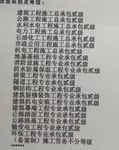 资质类别及等级：
建筑工程施工总承包贰级
公路工程施工总承包贰级
水利水电工程施工总承包贰级
电力工程施工总承包贰级
石油化工工程施工总承包贰级
市政公用工程施工总承包贰级
机电工程施工总承包贰级
地基基础工程专业承包贰级
消防设施工程专业承包贰级
桥梁工程专业承包贰级
隧道工程专业承包贰级
钢结构工程专业承包贰级
建筑机电安装工程专业承包贰级
公路路面工程专业承包贰级
公路路基工程专业承包贰级
输变电工程专业承包贰级
环保工程专业承包贰级
（备案制）施工劳务不分等级